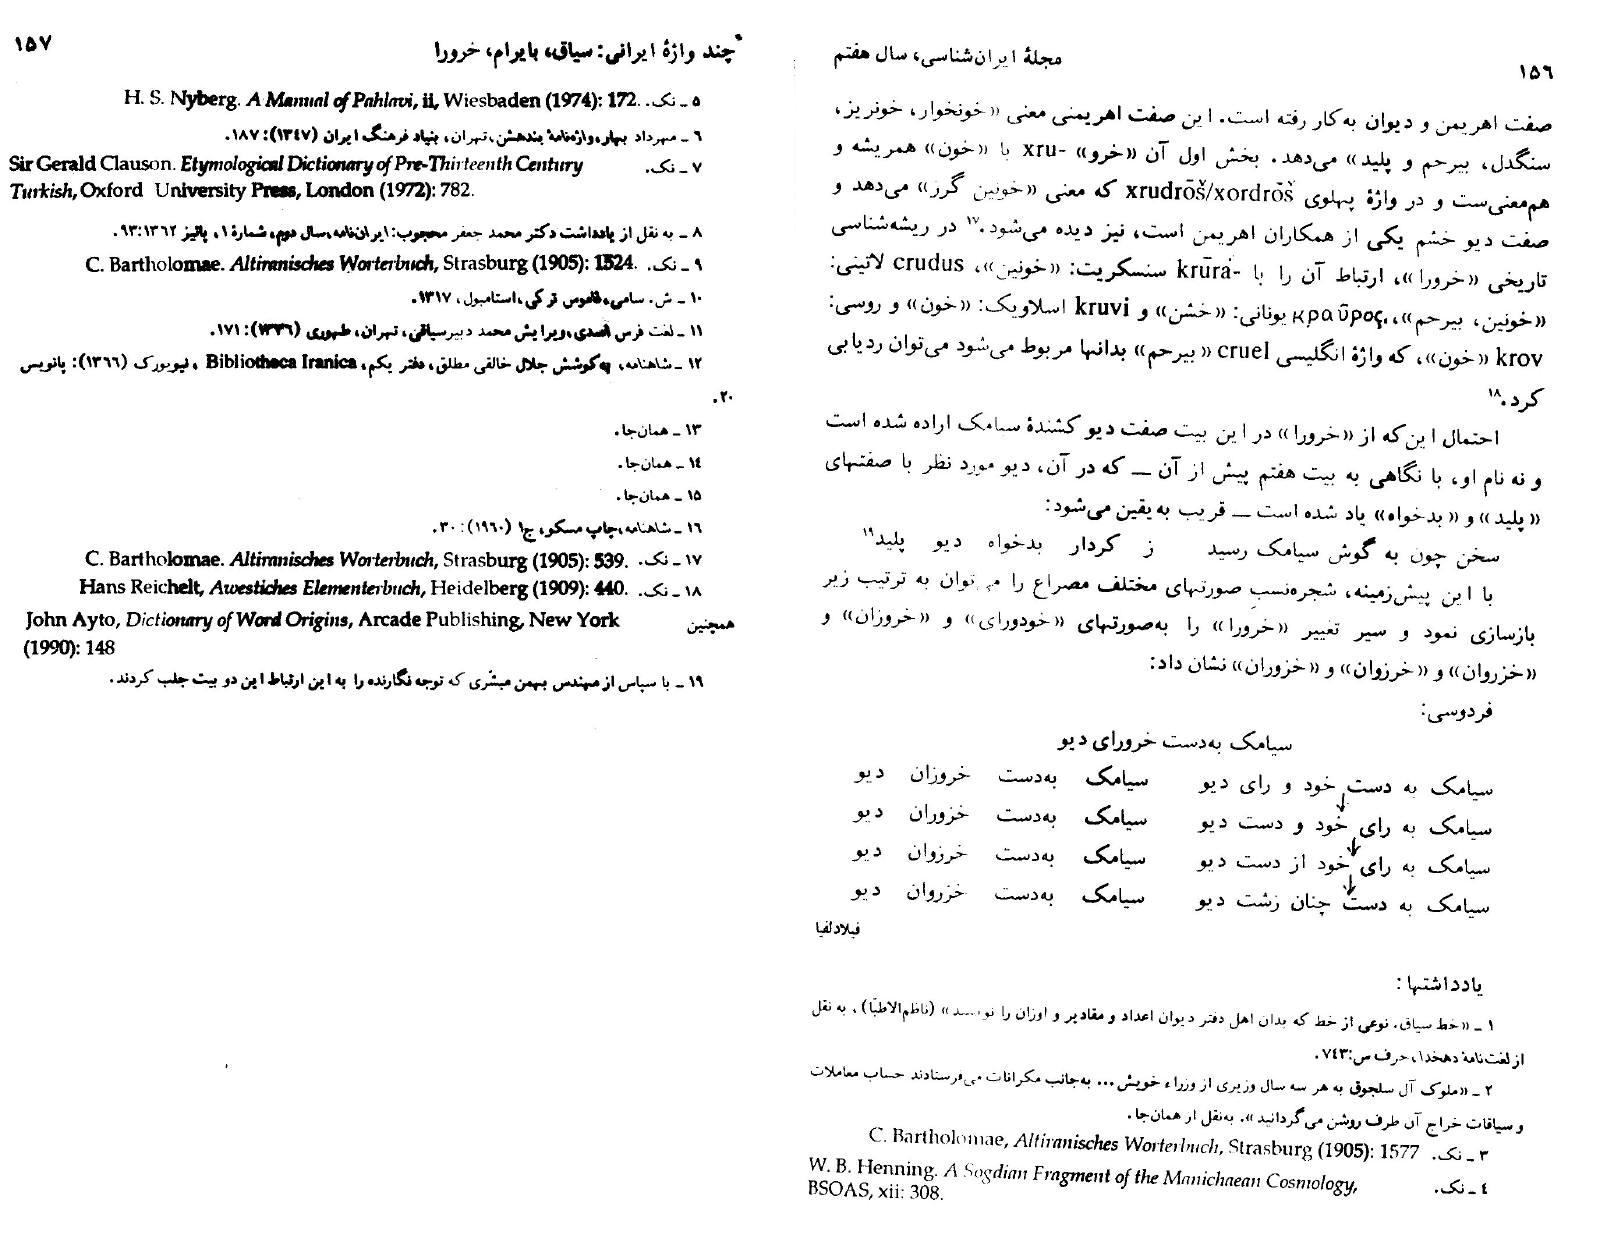 مجلهٔ ایران‌شناسی، سال هفتم
۱۵٦
صفت اهریمن و دیوان به‌کار رفته است. این صفت اهریمنی معنی «خونخوار، خونریز،
سنگدل، بیرحم و پلید» می‌دهد. بخش اول آن «خرو» xru- با «خون» همریشه و
هم‌معنی‌ست و در واژهٔ پهلوی xrudrōš/xordrōš که معنی «خونین گرز» می‌دهد و
صفت دیو خشم یکی از همکاران اهریمن است، نیز دیده می‌شود.۱۷ در ریشه‌شناسی
تاریخی «خرورا»، ارتباط آن را با krūrá- سنسکریت: «خونین»، crudus لاتینی:
«خونین، بیرحم»، κραῦρος یونانی: «خشن» و kruvi اسلاویک: «خون» و روسی:
krov «خون»، که واژهٔ انگلیسی cruel «بیرحم» بدانها مربوط می‌شود می‌توان ردیابی
کرد.۱۸
احتمال این‌که از «خرورا» در این بیت صفت دیو کشندهٔ سیامک اراده شده است
و نه نام او، با نگاهی به بیت هفتم پیش از آن ــ که در آن، دیو مورد نظر با صفتهای
«پلید» و «بدخواه» یاد شده است ــ قریب به‌یقین می‌شود:
سخن چون به گوش سیامک رسید ز کردار بدخواه دیو پلید۱۹
با این پیش‌زمینه، شجره‌نسب صورتهای مختلف مصراع را می‌توان به ترتیب زیر
بازسازی نمود و سیر تغییر «خرورا» را به‌صورتهای «خودورای» و «خروزان» و
«خزروان» و «خرزوان» و «خزوران» نشان داد:
فردوسی:
سیامک به‌دست خرورای دیو
سیامک به دست خود و رای دیو سیامک به‌دست خروزان دیو
سیامک به رای خود و دست دیو سیامک به‌دست خزوران دیو
سیامک به رای خود از دست دیو سیامک به‌دست خرزوان دیو
سیامک به دست چنان زشت دیو سیامک به‌دست خزروان دیو
فیلادلفیا
یادداشتها:
۱ ـ «خط سیاق. نوعی از خط که بدان اهل دفتر دیوان اعداد و مقادیر و اوزان را نویسند» (ناظم‌الاطبّا)، به نقل
از لغت‌نامهٔ دهخدا، حرف س: ۷٤۳.
۲ ـ «ملوک آل سلجوق به هر سه سال وزیری از وزراء خویش... به‌جانب مکرانات می‌فرستادند حساب معاملات
و سیاقات خراج آن طرف روشن می‌گردانید». به‌نقل از همان‌جا.
۳ ـ نک. C. Bartholomae, Altiranisches Worterbuch, Strasburg (1905): 1577
٤ ـ نک. W. B. Henning. A Sogdian Fragment of the Manichaean Cosmology,
BSOAS, xii: 308.
چند واژهٔ ایرانی: سیاق، بایرام، خرورا
۱۵۷
۵ ـ نک. H. S. Nyberg. A Manual of Pahlavi, ii, Wiesbaden (1974): 172.
٦ ـ مهرداد بهار، واژه‌نامهٔ بندهشن، تهران، بنیاد فرهنگ ایران (۱۳٤۷): ۱۸۷.
۷ ـ نک. Sir Gerald Clauson. Etymological Dictionary of Pre-Thirteenth Century
Turkish, Oxford University Press, London (1972): 782.
۸ ـ به نقل از یادداشت دکتر محمد جعفر محجوب: ایران‌نامه، سال دوم، شمارهٔ ۱، پائیز ۱۳٦۲: ۹۳.
۹ ـ نک. C. Bartholomae. Altiranisches Worterbuch, Strasburg (1905): 1524.
۱۰ ـ ش. سامی، قاموس ترکی، استامبول، ۱۳۱۷.
۱۱ ـ لغت فرس اسدی، ویرایش محمد دبیرسیاقی، تهران، طهوری (۱۳۳٦): ۱۷۱.
۱۲ ـ شاهنامه، به‌کوشش جلال خالقی مطلق، دفتر یکم، Bibliotheca Iranica، نیویورک (۱۳٦٦): پانویس
۲۰.
۱۳ ـ همان‌جا.
۱٤ ـ همان‌جا.
۱۵ ـ همان‌جا.
۱٦ ـ شاهنامه، چاپ مسکو، ج۱ (۱۹٦۰): ۳۰.
۱۷ ـ نک. C. Bartholomae. Altiranisches Worterbuch, Strasburg (1905): 539.
۱۸ ـ نک. Hans Reichelt, Awestiches Elementerbuch, Heidelberg (1909): 440.
همچنین John Ayto, Dictionary of Word Origins, Arcade Publishing, New York
(1990): 148
۱۹ ـ با سپاس از مهندس بهمن مبشّری که توجه نگارنده را به این ارتباط این دو بیت جلب کردند.